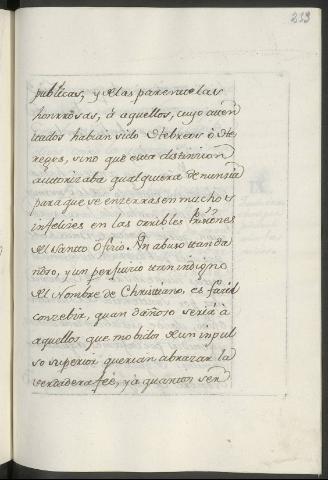 233
publicas, y de las parentelas
honrrosas, ò aquellos, cuyo aszen
habian sido Hebreos ò He
reges, sino que esta distinzion
autorizaba qualquiera denunzia
para que se enzerrasen muchos
infelizes en las orribles Prisiones
del Santto Ofizio. Un abuso tan da
ndso, y un perjuizio ttan indigno
del Nombre de Christtiano, es fazil
conzebir, quan dañoso seria à
aquellos que mobidos de un inpul
so superior querian abrazar la
verdadera feé, ya quantos ser